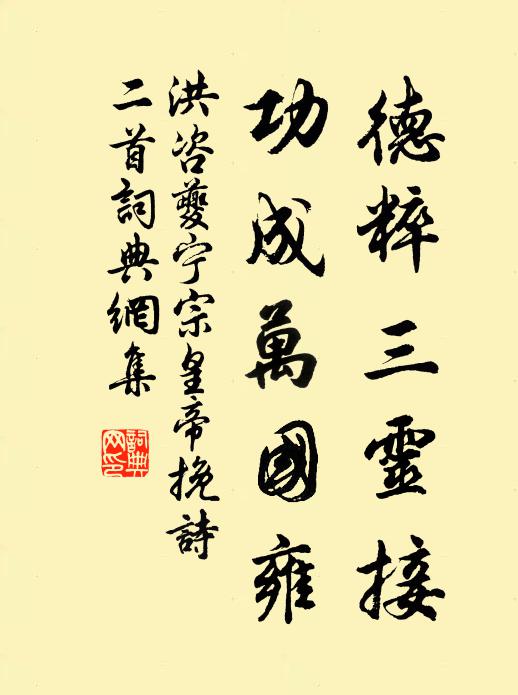 德粹三靈接
功成萬國雍
洪咨夔宁宗皇帝挽詩
二首詞典網集
詞典网印